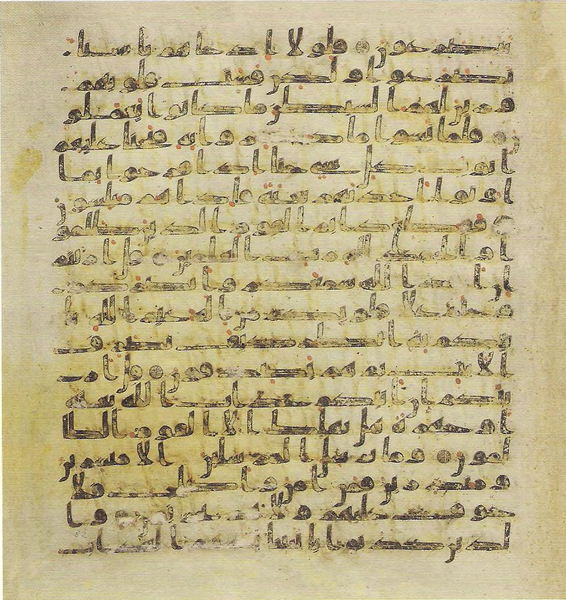 يتضرعون فلولا اذ جاهم باسنا
تضرعوا ولكن قست قلوبهم
وزين لهم الشيطن ما كانوا يعملو
ن فلما نسوا ما ذكروا به فتحنا عليهم
ابوب كل شى حتى اذا فرحوا بما
اوتوا اخذنهم بغتة فاذا هم مبلسون
فقطع دابر القوم الذين ظلمو
ا والحمد لله رب العلمين قل اريتم
ان اخذ الله سمعكم وابصركم و
ختم على قلوبكم من اله غير الله يا
تيكم به انظر كيف نصرف
الايت ثم هم يصدفون قل ار
يتكم ان اتيكم عذاب الله بغتة
او جهرة هل يهلك الا القوم الظا
لمون وما نرسل المرسلين الا مبشرين
ومنذرين فمن امن واصلح فلا
خوف عليهم ولا هم يحزنون وا
لذين كذبوا بايتنا يمسهم العذاب